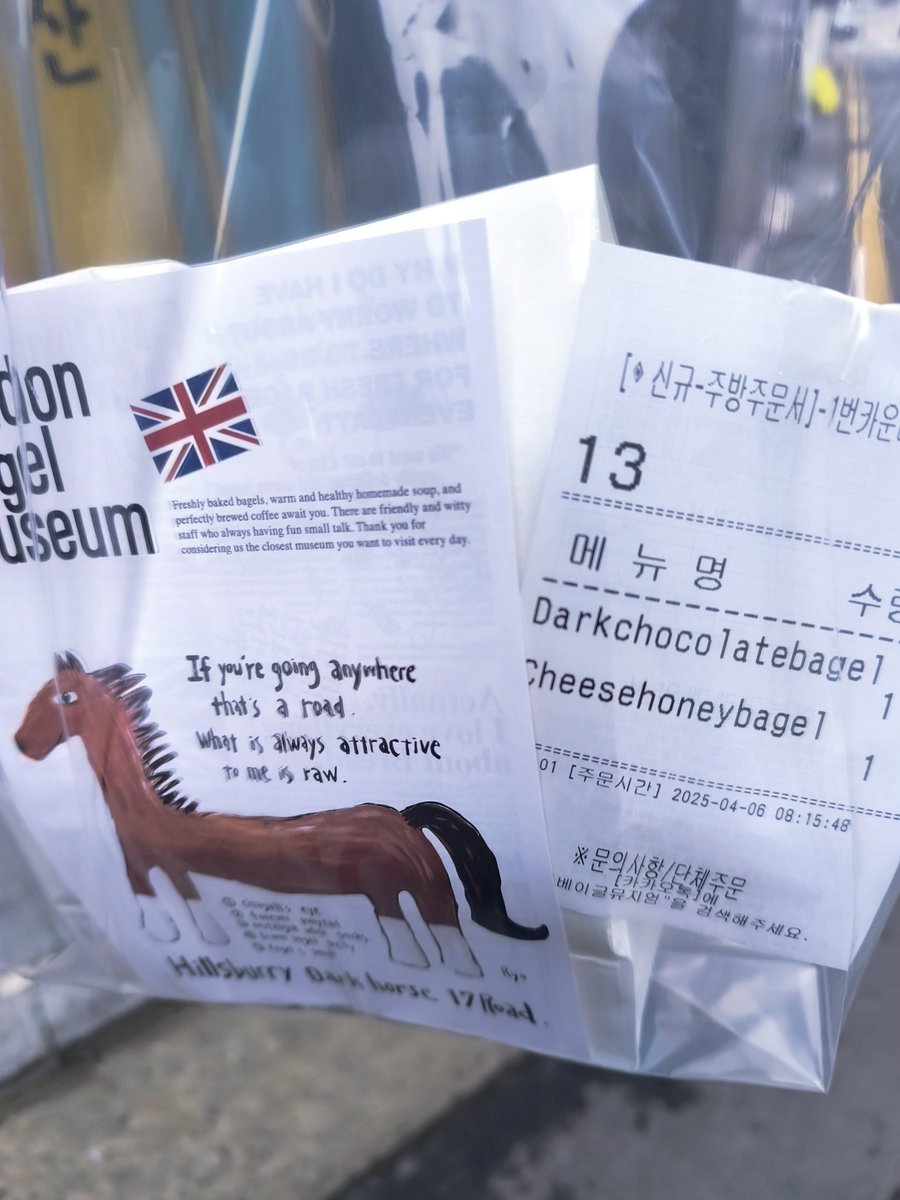 don
gel
useum
Freshly baked bagels, warm and healthy homemade soup, and
perfectly brewed coffee await you. There are friendly and witty
staff who always having fun small talk. Thank you for
considering us the closest museum you want to visit every day.
If you're going anywhere
that's a road.
What is always attractive
to me is raw.
Ryo
Hillsburry Dark horse 17 Road.
[♦ 신규-주방주문서]-1번카운
13
메 뉴 명 수량
Darkchocolatebagel
1
Cheesehoneybagel
1
01 [주문시간] 2025-04-06 08:15:48
※문의사항/단체주문
[카카오톡]에
베이글뮤지엄"을 검색해주세요.